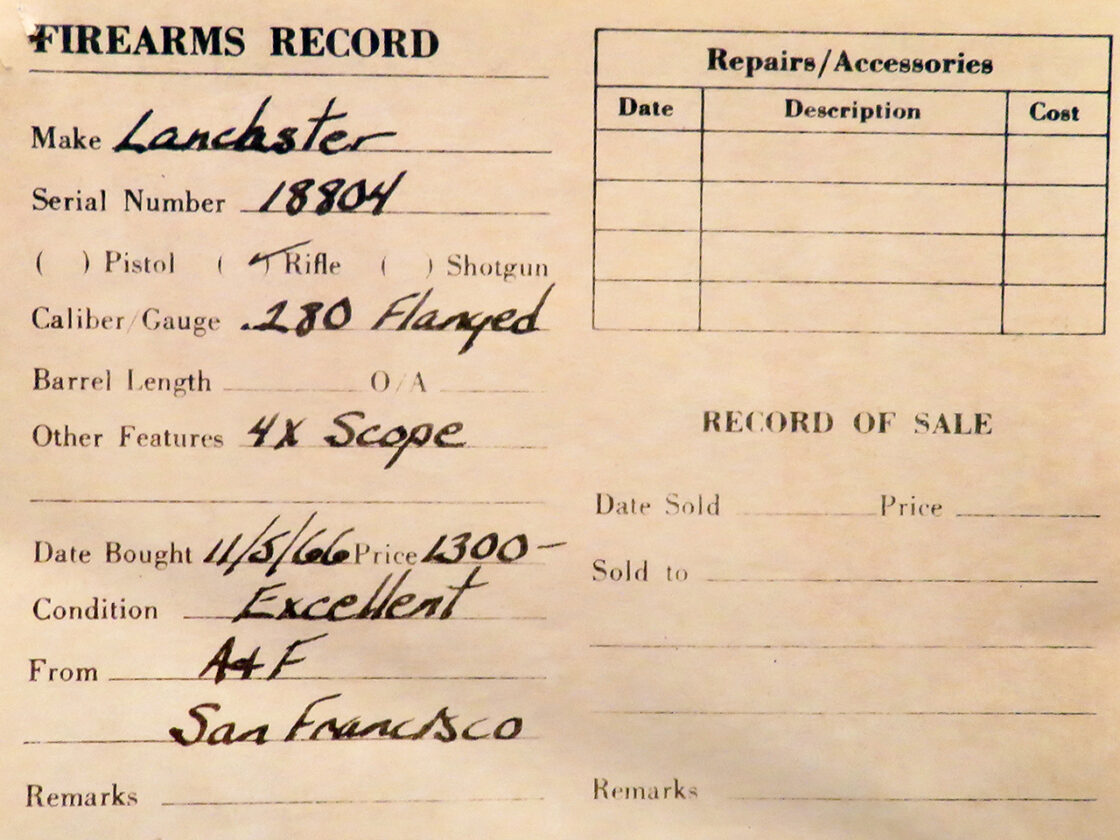 FIREARMS RECORD
Make Lanchster
Serial Number 18804
( ) Pistol (✓) Rifle ( ) Shotgun
Caliber/Gauge .280 Flanged
Barrel Length O/A
Other Features 4X Scope
Date Bought 11/5/66 Price 1300-
Condition Excellent
From A+F
San Francisco
Remarks
Repairs/Accessories
Date Description Cost
RECORD OF SALE
Date Sold Price
Sold to
Remarks